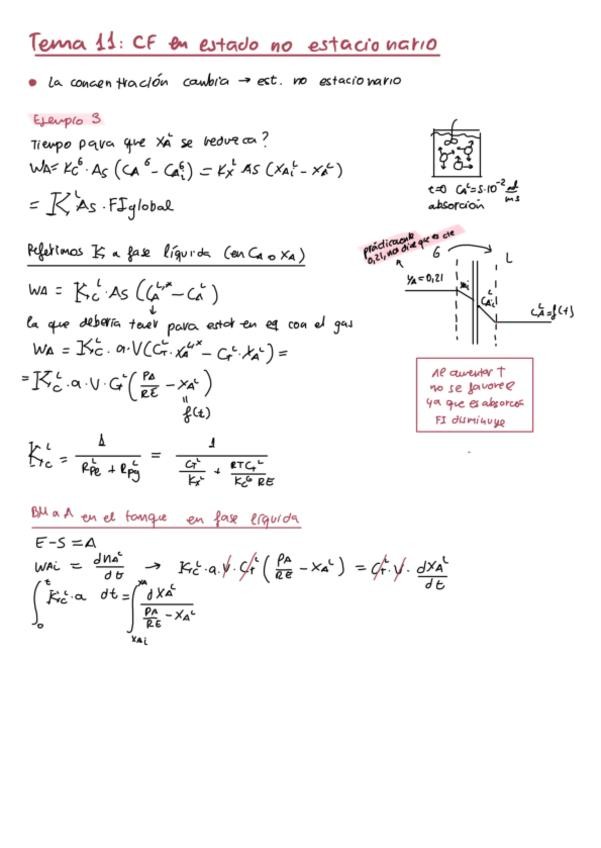 Tema 11: CF en estado no estacionario
• La concentración cambia → est. no estacionario
Ejemplo 3
Tiempo para que XA^L se reduzca?
WA = Kc^G · As (CA^G - CAi^G) = Kx^L As (XAi^L - XA^L)
= K^L As · FIglobal
t=0 CA^L = 5·10^-2
absorción
Referimos K a fase líquida (en CA o XA)
prácticamente 0,21, no dice que es cte
G L
YA = 0,21
CAi^L
CA^L = f(t)
WA = Kc^L · As (CA^L,* - CA^L)
la que debería tener para estar en eq con el gas
WA = Kc^L · a · V (CT^L · XA^L* - CT^L · XA^L) =
= Kc^L · a · V · CT^L (PA/RE - XA^L)
=
f(t)
Al aumentar T
no se favorece
ya que es absorción
FI disminuye
Kc^L = 1/(RPL + RPg) = 1/(CT^L/Kx^L + RTCT^L/(Kc^G RE))
BM a A en el tanque en fase líquida
E - S = A
WAi = dnA^L/dt → Kc^L · a · V · CT^L (PA/RE - XA^L) = CT^L · V · dXA^L/dt
∫0^t Kc^L · a dt = ∫XAi^XA dXA^L/(PA/RE - XA^L)